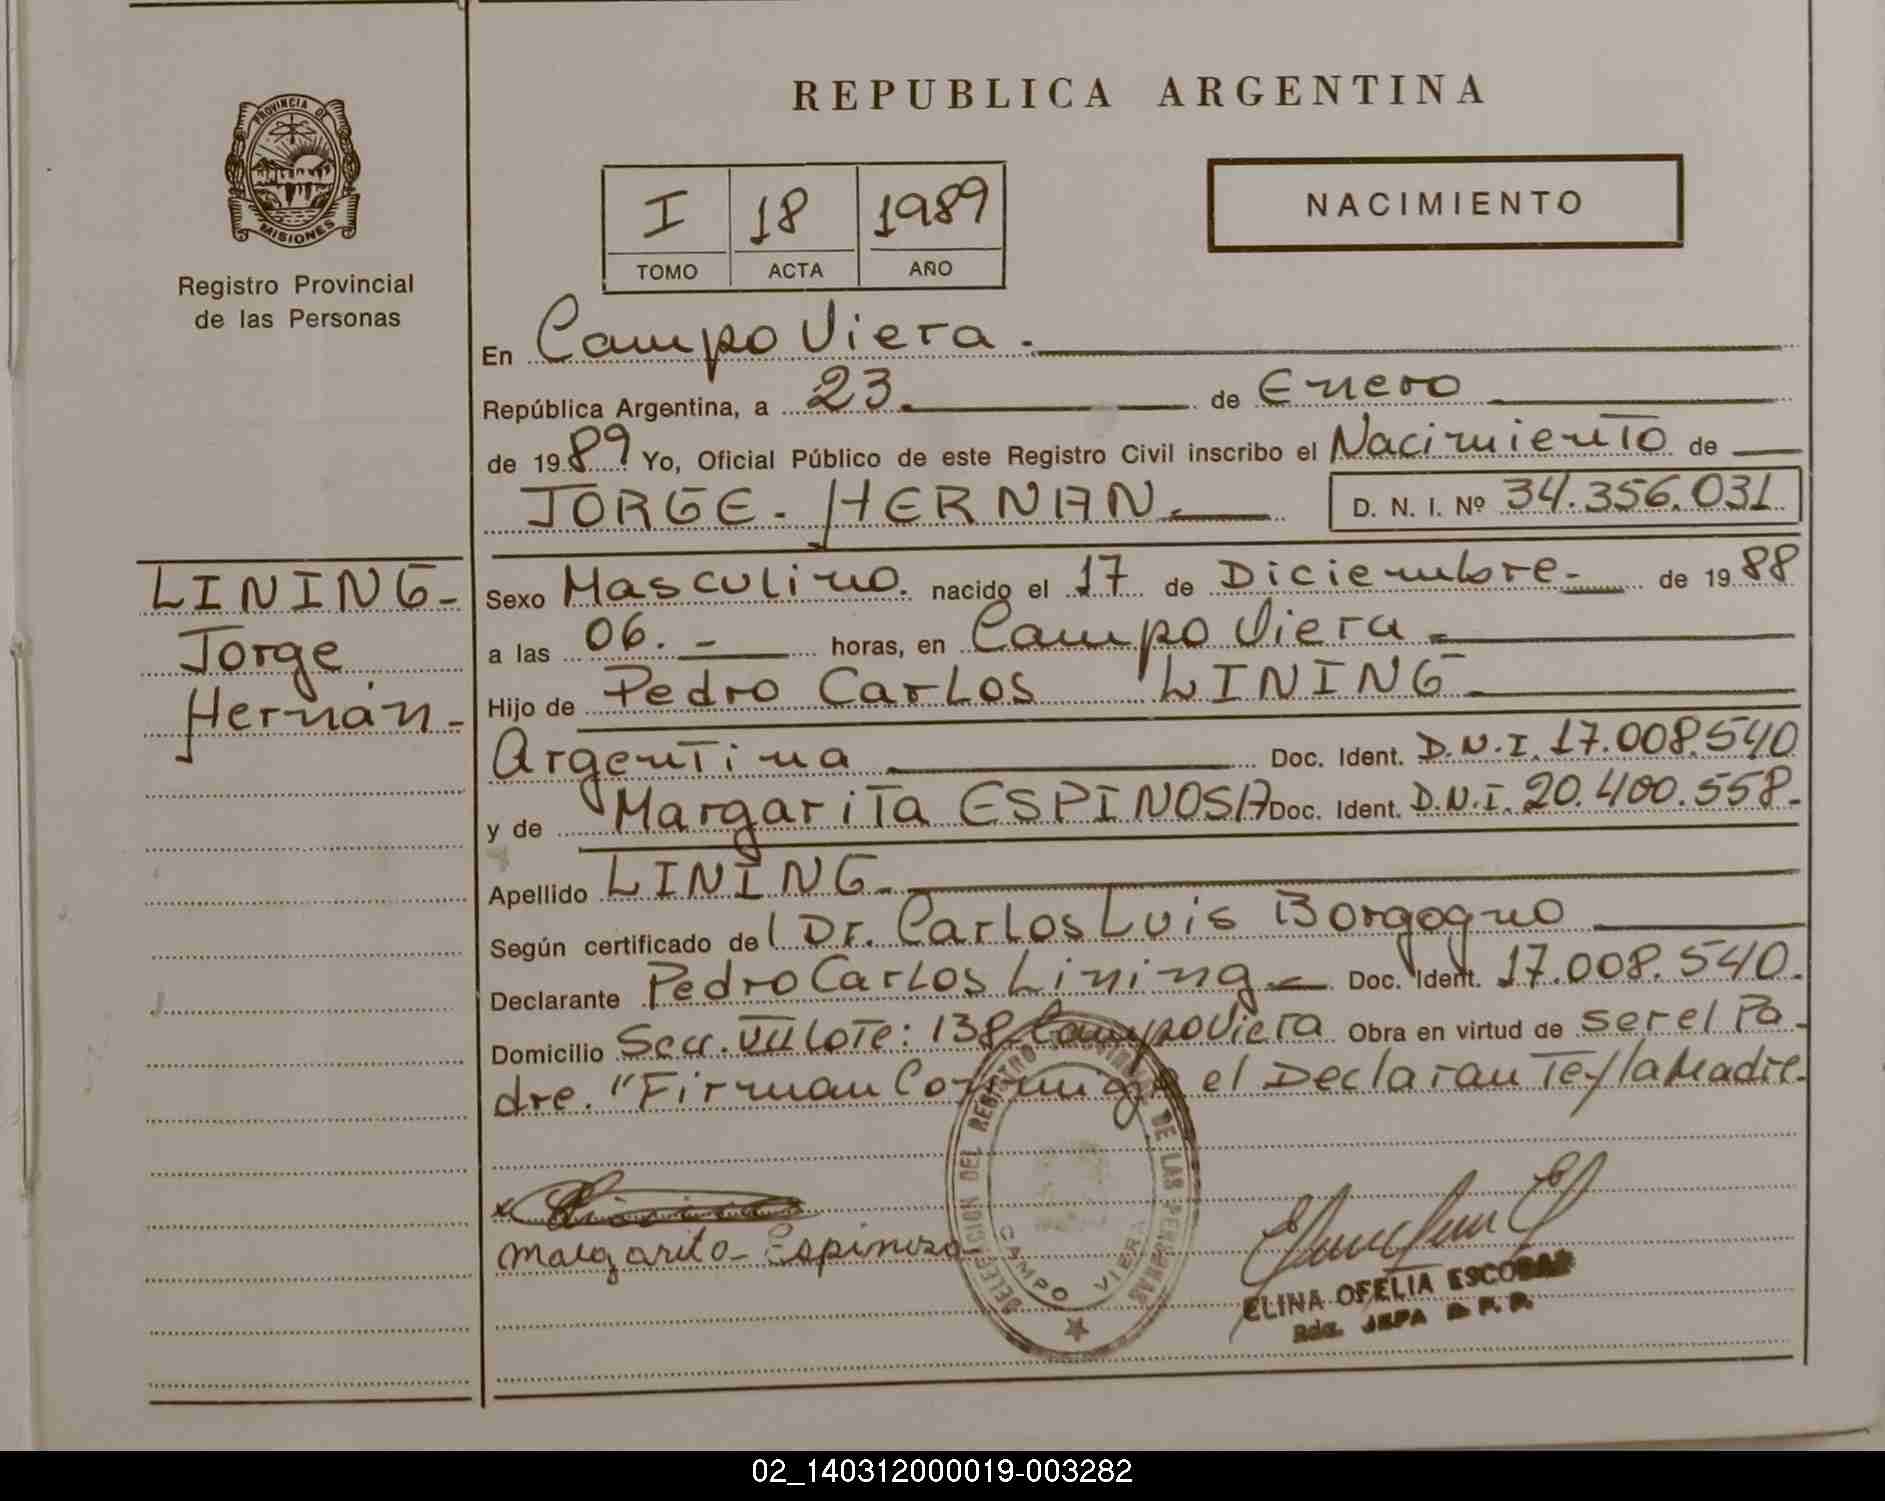 REPUBLICA ARGENTINA
PROVINCIA DE
MISIONES
Registro Provincial
de las Personas
I 18 1989
TOMO ACTA AÑO
NACIMIENTO
En Campo Viera.
República Argentina, a 23. de Enero
de 1989 Yo, Oficial Público de este Registro Civil inscribo el Nacimiento de
JORGE - HERNAN. D. N. I. Nº 34.356.031
LINING-
Jorge
Hernán.-
Sexo Masculino. nacido el 17 de Diciembre- de 1988
a las 06.- horas, en Campo Viera-
Hijo de Pedro Carlos LINING
Argentina Doc. Ident. D.N.I. 17.008.540
y de Margarita ESPINOSA Doc. Ident. D.N.I. 20.400.558.-
Apellido LINING-
Según certificado del Dr. Carlos Luis Borgogno
Declarante Pedro Carlos Lining- Doc. Ident. 17.008.540.
Domicilio Secc. VII Lote: 138 Campo Viera Obra en virtud de ser el Pa-
dre. "Firman Conmigo el Declarante y la Madre.
DELEGACION DEL REGISTRO PROVINCIAL DE LAS PERSONAS
CAMPO VIERA
Margarita Espinosa
ELINA OFELIA ESCOBAR
JEFA
02_140312000019-003282